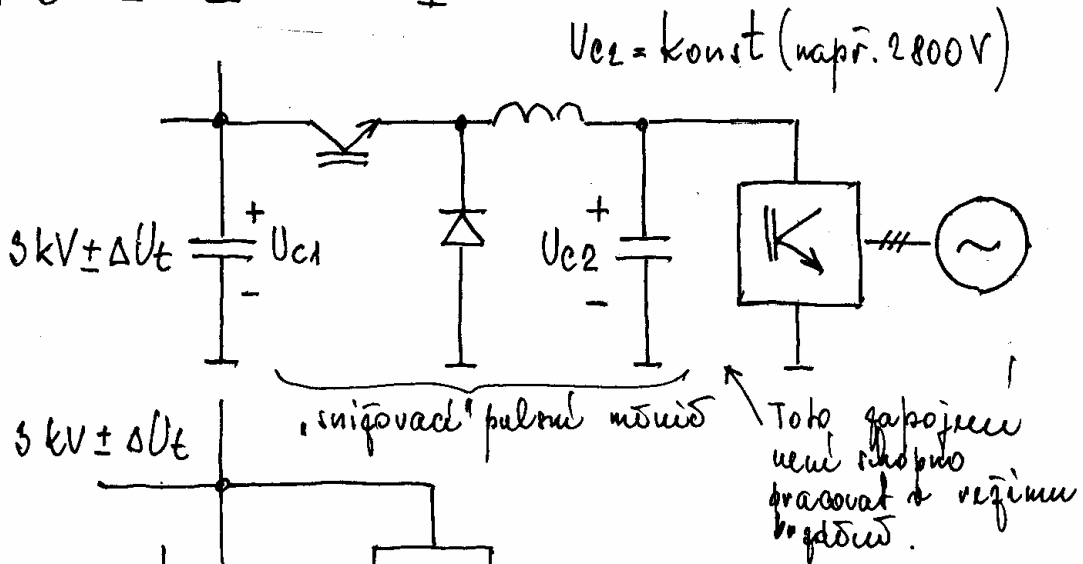 Uc2 = konst (např. 2800V)
3 kV ± ΔUt
+
Uc1
-
+
Uc2
-
~
„snižovací" pulsní měnič
Toto zapojení
není schopno
pracovat v režimu
brzdění.
3 kV ± ΔUt